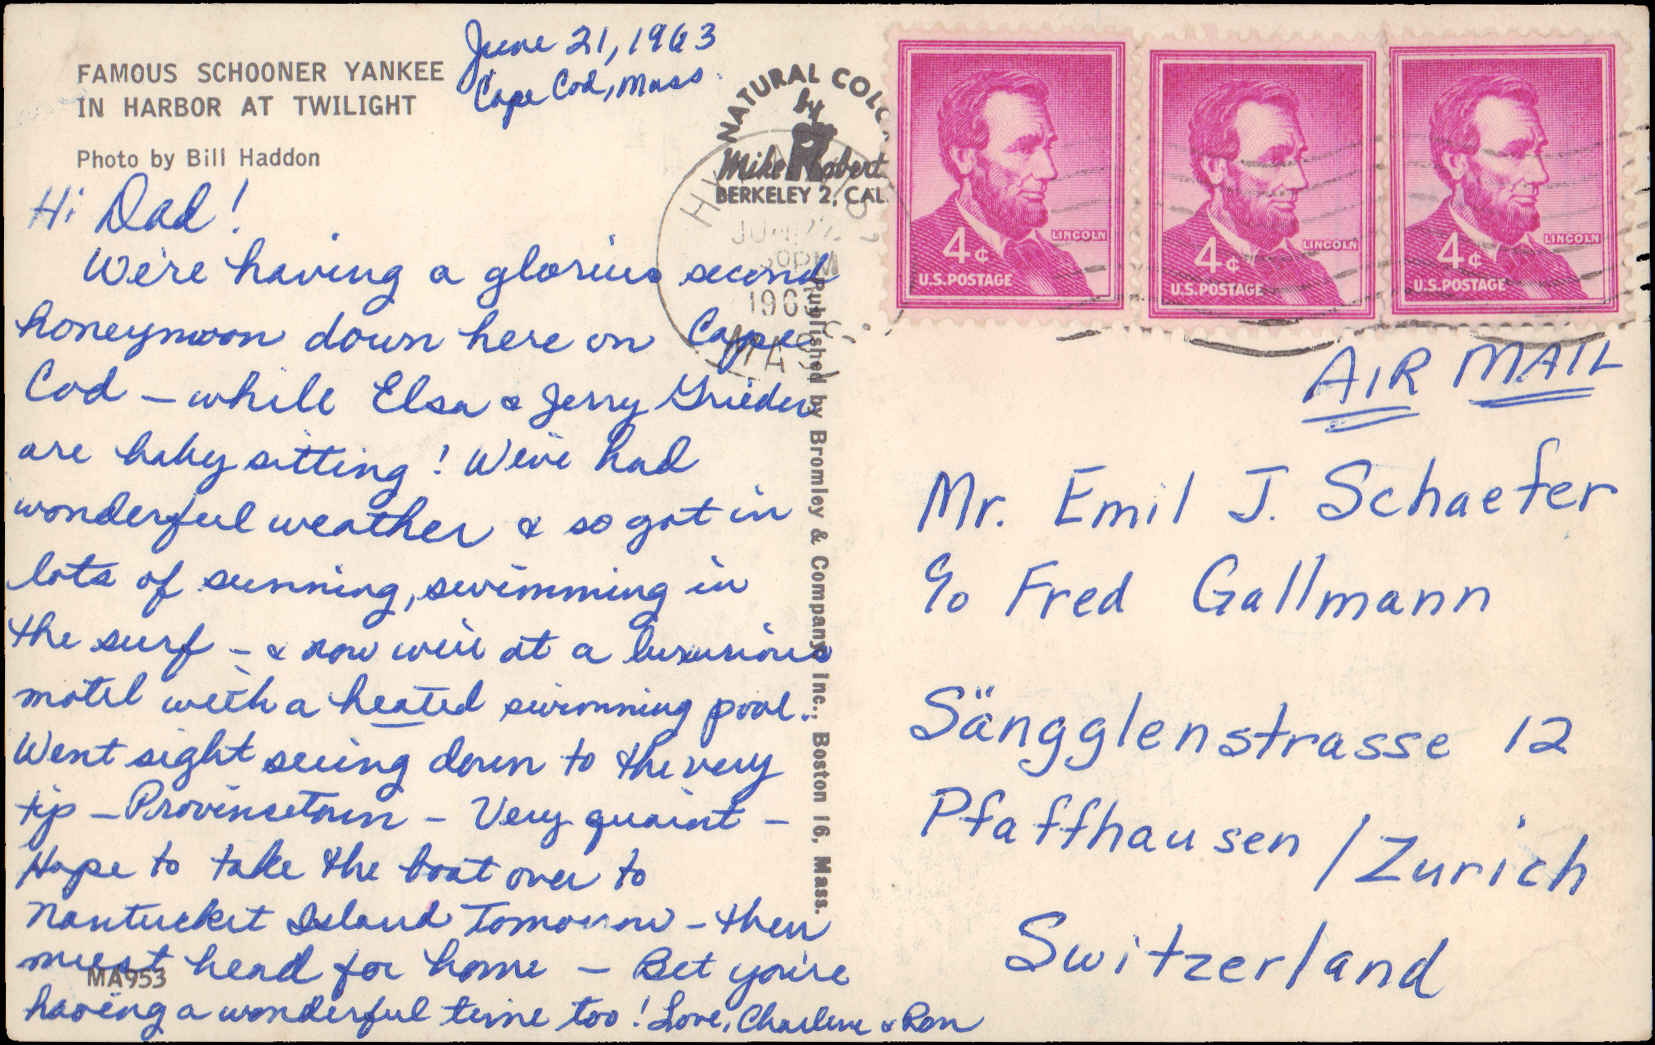 FAMOUS SCHOONER YANKEE
IN HARBOR AT TWILIGHT
Photo by Bill Haddon
June 21, 1963
Cape Cod, Mass.
NATURAL COLO
by
Mike Robert
BERKELEY 2, CAL.
Hi Dad!
We're having a glorius second
honeymoon down here on Cape
Cod – while Elsa & Jerry Grieder
are baby sitting! We've had
wonderful weather & so got in
lots of sunning, swimming in
the surf – & now we're at a luxurious
motel with a heated swimming pool.
Went sight seeing down to the very
tip – Provincetown – Very quaint –
Hope to take the boat over to
Nantucket Island Tomorrow – then
must head for home – Bet you're
having a wonderful time too! Love, Charlene & Ron
MA953
Published by Bromley & Company, Inc., Boston 16, Mass.
HY
JUN 22
PM
1963
MASS
4¢
LINCOLN
U.S. POSTAGE
4¢
LINCOLN
U.S. POSTAGE
4¢
LINCOLN
U.S. POSTAGE
AIR MAIL
Mr. Emil J. Schaefer
c/o Fred Gallmann
Sängglenstrasse 12
Pfaffhausen / Zurich
Switzerland